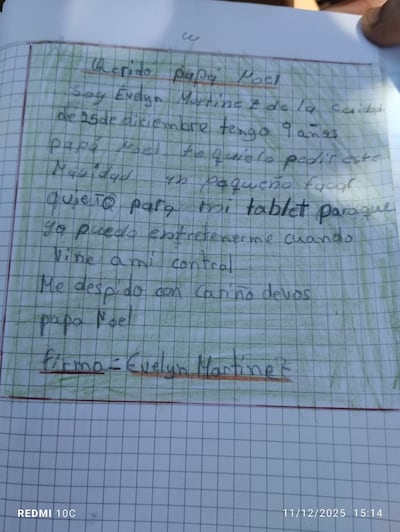 Qerido papá Noel
Soy Evelyn Martinez de la
de 25 de diciembre tengo 9 años
papá Noel te quielo pedir este
Navidad un pequeño
quiero para mi tablet para que
yo pueda entretenerme cuando
Vine a mi control
Me despido con cariño de vos
papa Noel
firma = Evelyn Martinez
REDMI 10C
11/12/2025 15:14